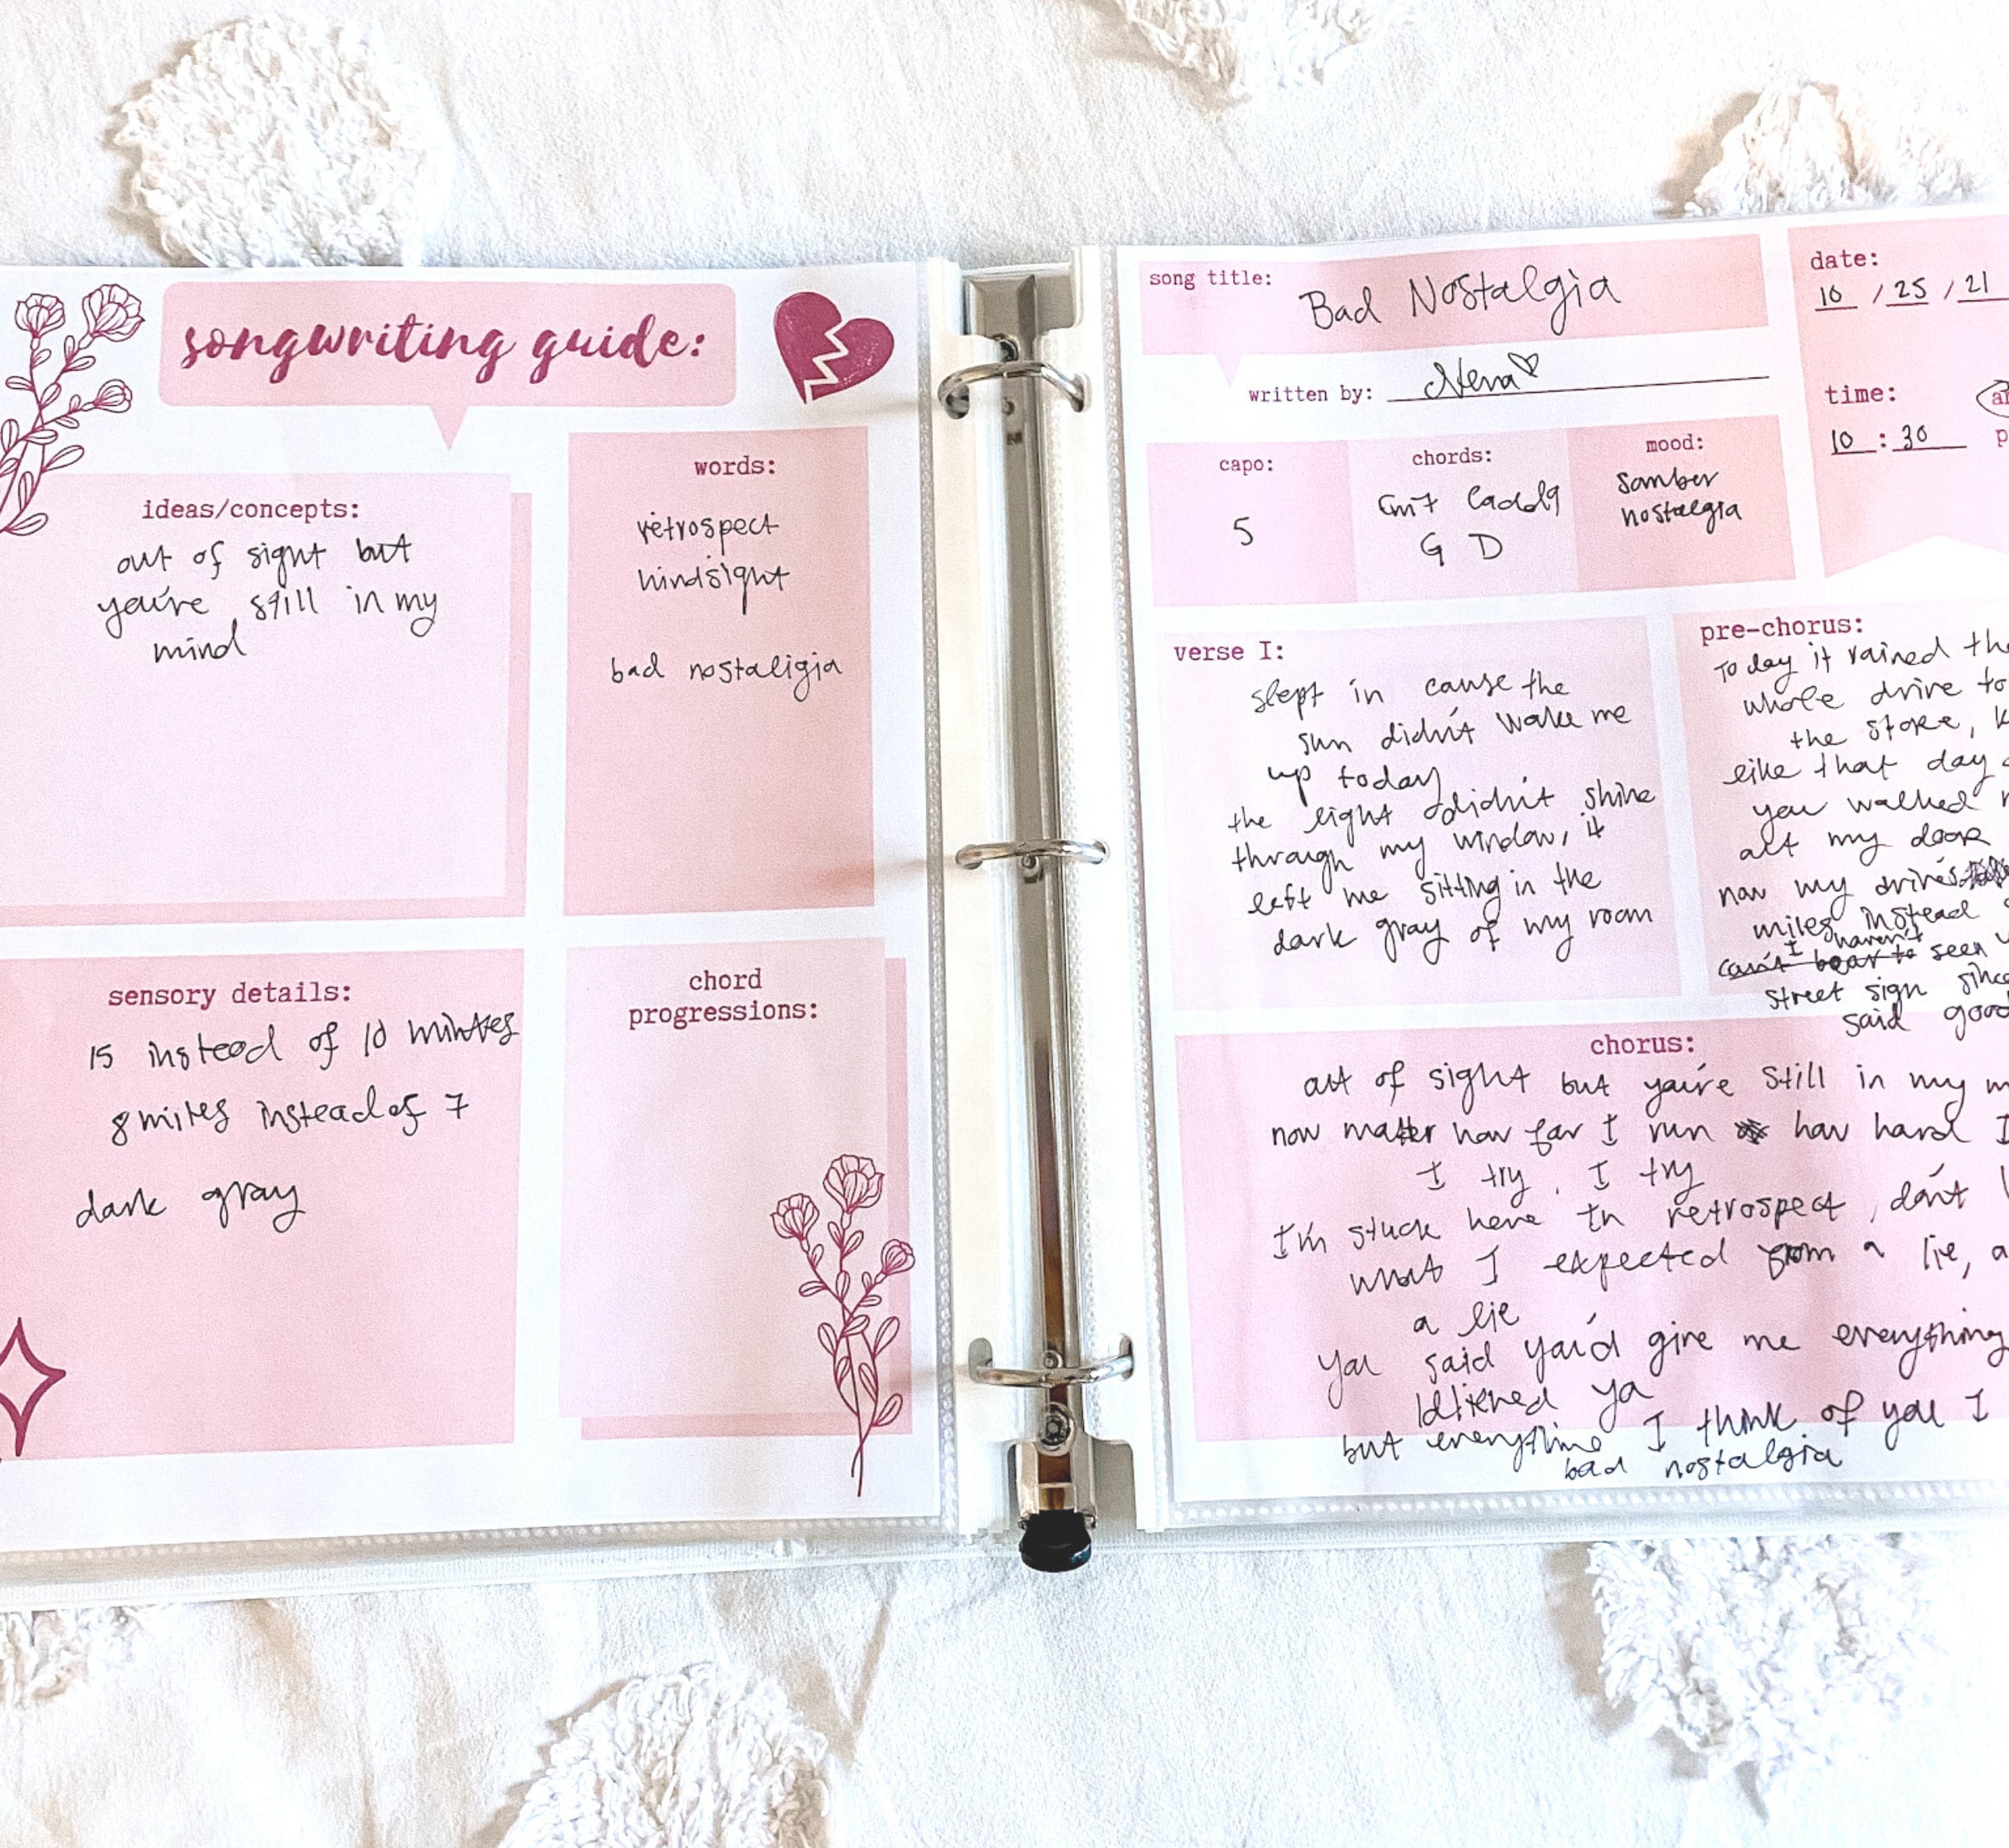 songwriting guide:
ideas/concepts:
out of sight but
you're still in my
mind
words:
retrospect
hindsight
bad nostaligia
sensory details:
15 instead of 10 minutes
8 miles instead of 7
dark gray
chord
progressions:
song title:
Bad Nostalgia
written by:
date:
10 / 25 / 21
time:
10 : 30
capo:
5
chords:
Em7 Cadd9
G D
mood:
somber
nostalgia
verse I:
slept in cause the
sun didn't wake me
up today
the light didn't shine
through my window, it
left me sitting in the
dark gray of my room
pre-chorus:
Today it rained the
whole drive to
the store,
like that day
you walked
out my door
now my drive's
miles instead
I haven't
can't bear to seen
street sign since
said
chorus:
out of sight but you're still in my
now matter how far I run how hard I
I try, I try
I'm stuck here in retrospect, don't
what I expected from a lie,
a lie
you said you'd give me everything
ya
but everytime I think of you I
bad nostalgia